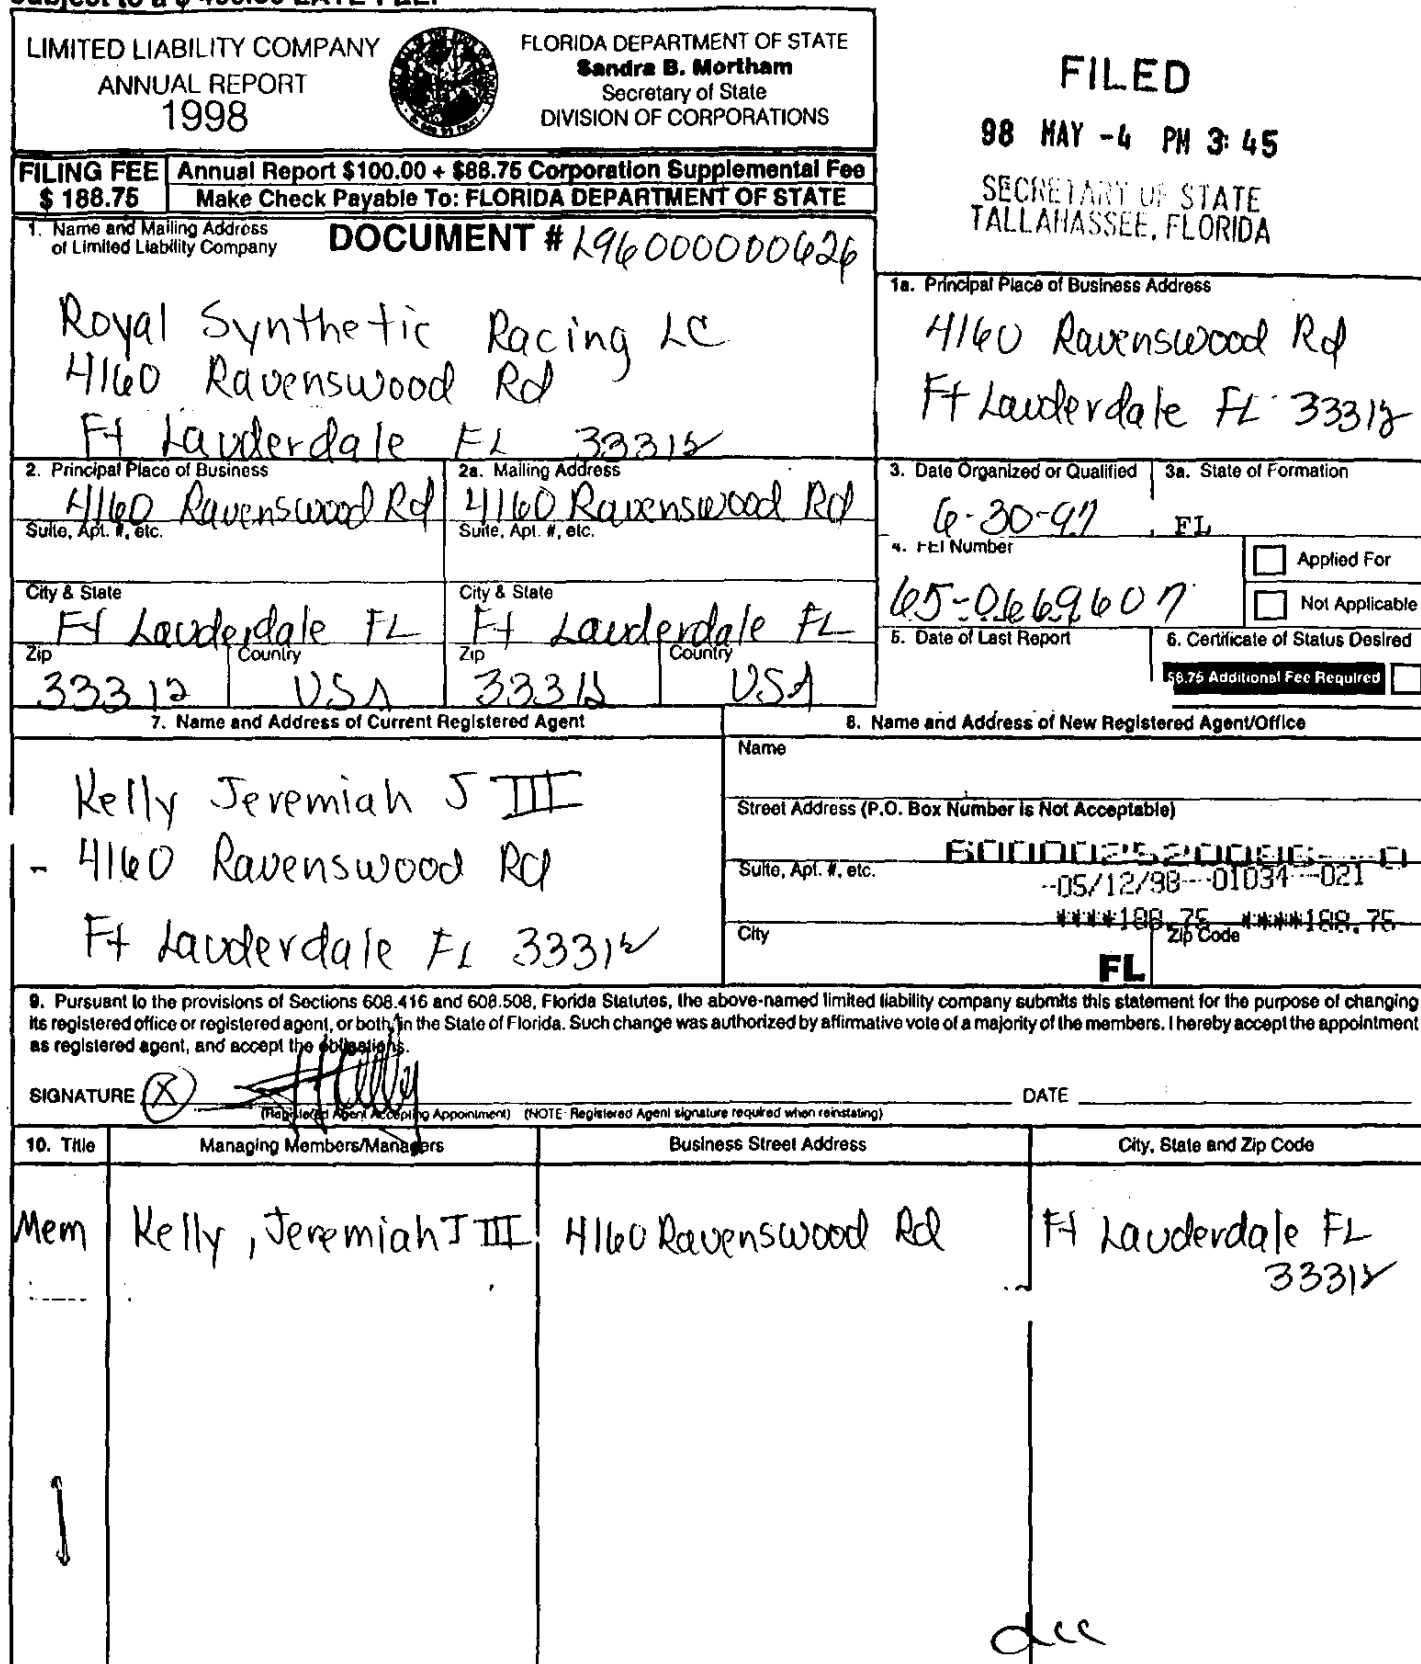 LIMITED LIABILITY COMPANY
ANNUAL REPORT
1998
FLORIDA DEPARTMENT OF STATE
Sandra B. Mortham
Secretary of State
DIVISION OF CORPORATIONS
FILED
98 MAY -4 PM 3:45
SECRETARY OF STATE
TALLAHASSEE, FLORIDA
FILING FEE
$ 188.75
Annual Report $100.00 + $88.75 Corporation Supplemental Fee
Make Check Payable To: FLORIDA DEPARTMENT OF STATE
1. Name and Mailing Address
of Limited Liability Company
DOCUMENT # L96000000626
Royal Synthetic Racing LC
4160 Ravenswood Rd
Ft Lauderdale FL 33312
1a. Principal Place of Business Address
4160 Ravenswood Rd
Ft Lauderdale FL 33312
2. Principal Place of Business
4160 Ravenswood Rd
Suite, Apt. #, etc.
City & State
Ft Lauderdale FL
Zip
33312
Country
USA
2a. Mailing Address
4160 Ravenswood Rd
Suite, Apt. #, etc.
City & State
Ft Lauderdale FL
Zip
33312
Country
USA
3. Date Organized or Qualified
6-30-97
3a. State of Formation
FL
4. FEI Number
65-0669607
Applied For
Not Applicable
5. Date of Last Report
6. Certificate of Status Desired
$8.75 Additional Fee Required
7. Name and Address of Current Registered Agent
Kelly Jeremiah J III
4160 Ravenswood Rd
Ft Lauderdale FL 33312
8. Name and Address of New Registered Agent/Office
Name
Street Address (P.O. Box Number is Not Acceptable)
Suite, Apt. #, etc.
-05/12/98--01034--021
****188.75 ****188.75
City
FL
Zip Code
9. Pursuant to the provisions of Sections 608.416 and 608.508, Florida Statutes, the above-named limited liability company submits this statement for the purpose of changing
its registered office or registered agent, or both, in the State of Florida. Such change was authorized by affirmative vote of a majority of the members. I hereby accept the appointment
as registered agent, and accept the obligations.
SIGNATURE X
DATE
(Registered Agent Accepting Appointment) (NOTE: Registered Agent signature required when reinstating)
10. Title
Managing Members/Managers
Business Street Address
City, State and Zip Code
Mem
Kelly, Jeremiah J III
4160 Ravenswood Rd
Ft Lauderdale FL
33312